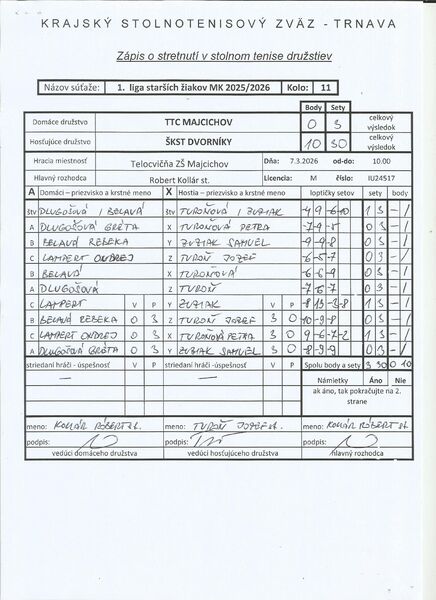 KRAJSKÝ STOLNOTENISOVÝ ZVÄZ - TRNAVA
Zápis o stretnutí v stolnom tenise družstiev
Názov súťaže: 1. liga starších žiakov MK 2025/2026 Kolo: 11
Body Sety
Domáce družstvo TTC MAJCICHOV 0 3 celkový výsledok
Hosťujúce družstvo ŠKST DVORNÍKY 10 30 celkový výsledok
Hracia miestnosť Telocvičňa ZŠ Majcichov Dňa: 7.3.2026 od-do: 10.00
Hlavný rozhodca Robert Kollár st. Licencia: M číslo: IU24517
A Domáci - priezvisko a krstné meno X Hostia - priezvisko a krstné meno loptičky setov sety body
štv DLUGOŠOVÁ / BELAVÁ štv TUROŇOVÁ / ZUZIAK -4 9 -6 -10 1 3 - /
A DLUGOŠOVÁ GRÉTA X TUROŇOVÁ PETRA -7 -9 -5 0 3 - /
B BELAVÁ REBEKA Y ZUZIAK SAMUEL -9 -9 -8 0 3 - /
C LAMPERT ONDREJ Z TUROŇ JOZEF -6 -5 -7 0 3 - /
B BELAVÁ X TUROŇOVÁ -6 -6 -9 0 3 - /
A DLUGOŠOVÁ Z TUROŇ -7 -6 -7 0 3 - /
C LAMPERT V P Y ZUZIAK V P -8 13 -3 -8 1 3 - /
B BELAVÁ REBEKA 0 3 Z TUROŇ JOZEF 3 0 -10 -3 -8 0 3 - /
C LAMPERT ONDREJ 0 3 X TUROŇOVÁ PETRA 3 0 9 -6 -7 -2 1 3 - /
A DLUGOŠOVÁ GRÉTA 0 3 Y ZUZIAK SAMUEL 3 0 -8 -9 -9 0 3 - /
striedaní hráči - úspešnosť striedaní hráči - úspešnosť Spolu body a sety 3 30 0 10
— — Námietky Áno Nie
ak áno, tak pokračujte na 2. strane
meno: KOLLÁR RÓBERT st. meno: TUROŇ JOZEF st. meno: KOLLÁR RÓBERT st.
podpis: podpis: podpis:
vedúci domáceho družstva vedúci hosťujúceho družstva hlavný rozhodca